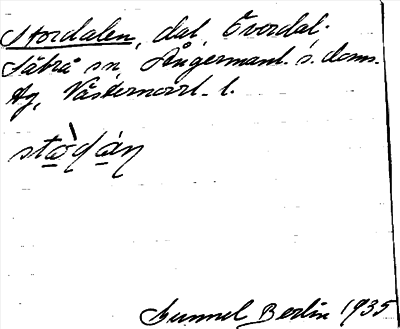 Stordalen, dal, Överdal.
Säbrå sn, Ångermanl. s. doms.
tg, Västernorrl. l.
stòḍáṇ
Gunnel Berlin 1935